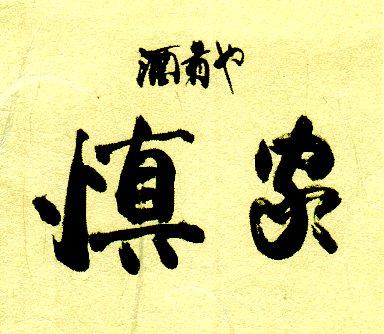 酒肴や
慎家